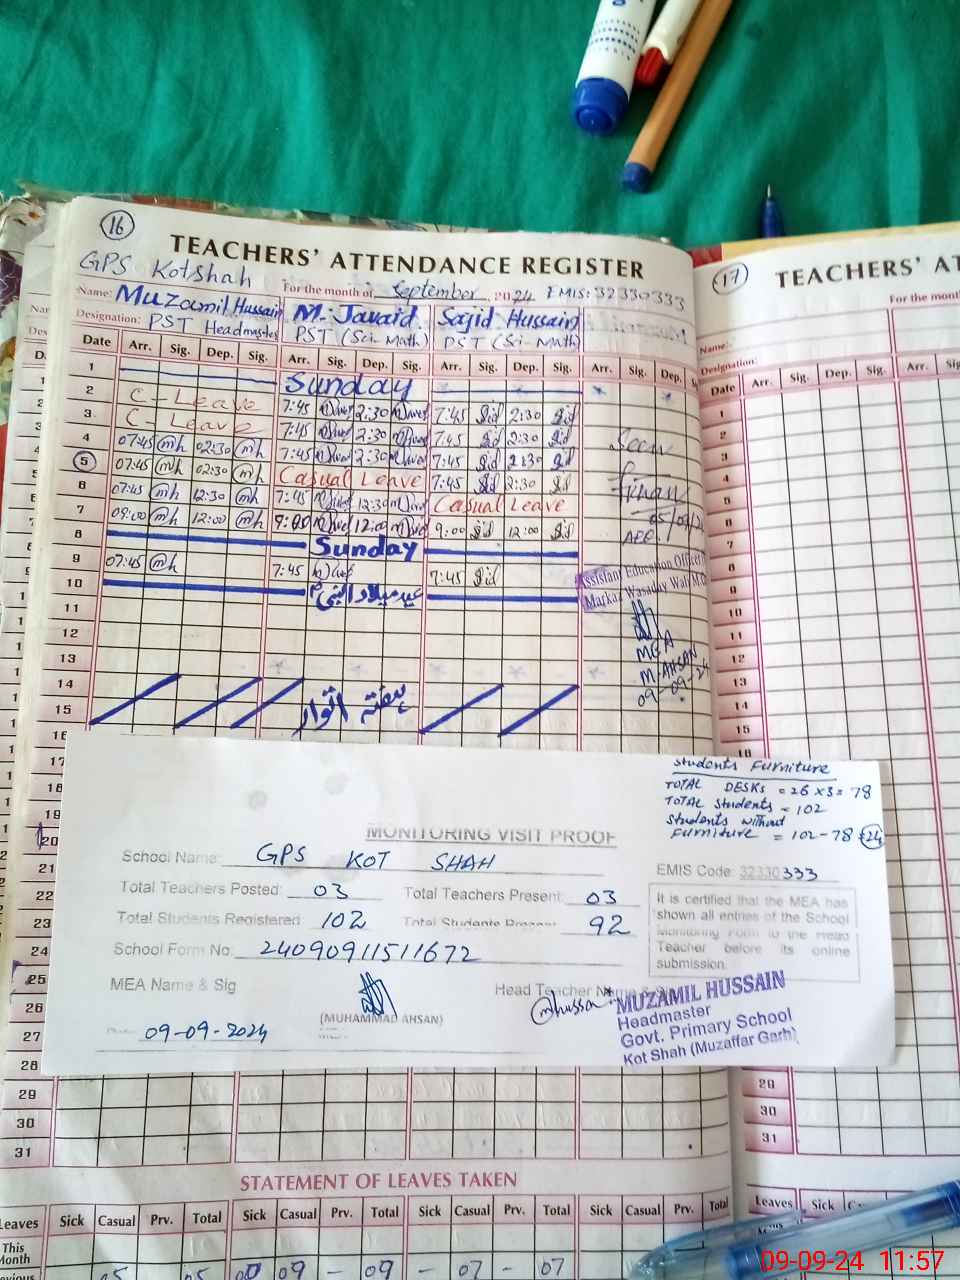 16
TEACHERS' ATTENDANCE REGISTER
GPS KotShah
For the month of September 2024 EMIS: 32330333
Name: Muzamil Hussain M. Javaid Sajid Hussain
Designation: PST Headmaster PST (Sci-Math) PST (Sci-Math)
Date Arr. Sig. Dep. Sig. Arr. Sig. Dep. Sig. Arr. Sig. Dep. Sig. Arr. Sig. Dep.
1 Sunday
2 C-Leave 7:45 2:30 7:45 2:30
3 C-Leave 7:45 2:30 7:45 2:30
4 07:45 mh 02:30 mh 7:45 2:30 7:45 2:30
5 07:45 mh 02:30 mh Casual Leave 7:45 2:30
6 07:45 mh 12:30 mh 7:45 12:30 Casual Leave
7 09:00 mh 12:00 mh 9:00 12:00 9:00 12:00
8 Sunday
9 07:45 mh 7:45 7:45
10 عید میلاد النبی
11
12
13
14
15
ہفتہ اتوار
16
17
18
19
20
21
22
23
24
25
26
27
28
29
30
31
Seen
05/09/24
AEO
Assistant Education Officer
MEA
M. AHSAN
09-09-24
Students Furniture
TOTAL DESKS = 26 x3 = 78
TOTAL Students = 102
Students without
Furniture = 102-78 = 24
MONITORING VISIT PROOF
School Name: GPS KOT SHAH
EMIS Code: 32330333
Total Teachers Posted: 03 Total Teachers Present: 03
Total Students Registered: 102 Total Students Present: 92
School Form No. 24090911511672
It is certified that the MEA has
shown all entries of the School
Monitoring Form to the Head
Teacher before its online
submission.
MEA Name & Sig
(MUHAMMAD AHSAN)
Head Teacher Name & Sig
mhussain
MUZAMIL HUSSAIN
Headmaster
Govt. Primary School
Kot Shah (Muzaffar Garh)
09-09-2024
STATEMENT OF LEAVES TAKEN
Leaves Sick Casual Prv. Total Sick Casual Prv. Total Sick Casual Prv. Total Sick Casual Prv. Total
This
Month
05 05 00 09 - 09 - 07 - 07
17
TEACHERS' AT
For the month
Name:
Designation:
Date Arr. Sig. Dep. Sig. Arr. Sig.
1
2
3
4
5
6
7
8
9
10
11
12
13
14
15
16
29
30
31
Leaves Sick
09-09-24 11:57